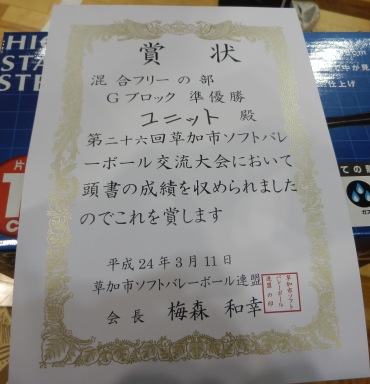 HI
STA
STE
賞状
混合フリーの部
Gブロック 準優勝
ユニット 殿
第二十六回草加市ソフトバレ
ーボール交流大会において
頭書の成績を収められました
のでこれを賞します
平成24年3月11日
草加市ソフトバレーボール連盟
会長 梅森 和幸
草加市ソフト
バレーボール
連盟の印
cm
中が見
仕上げ
片
ての
ガス